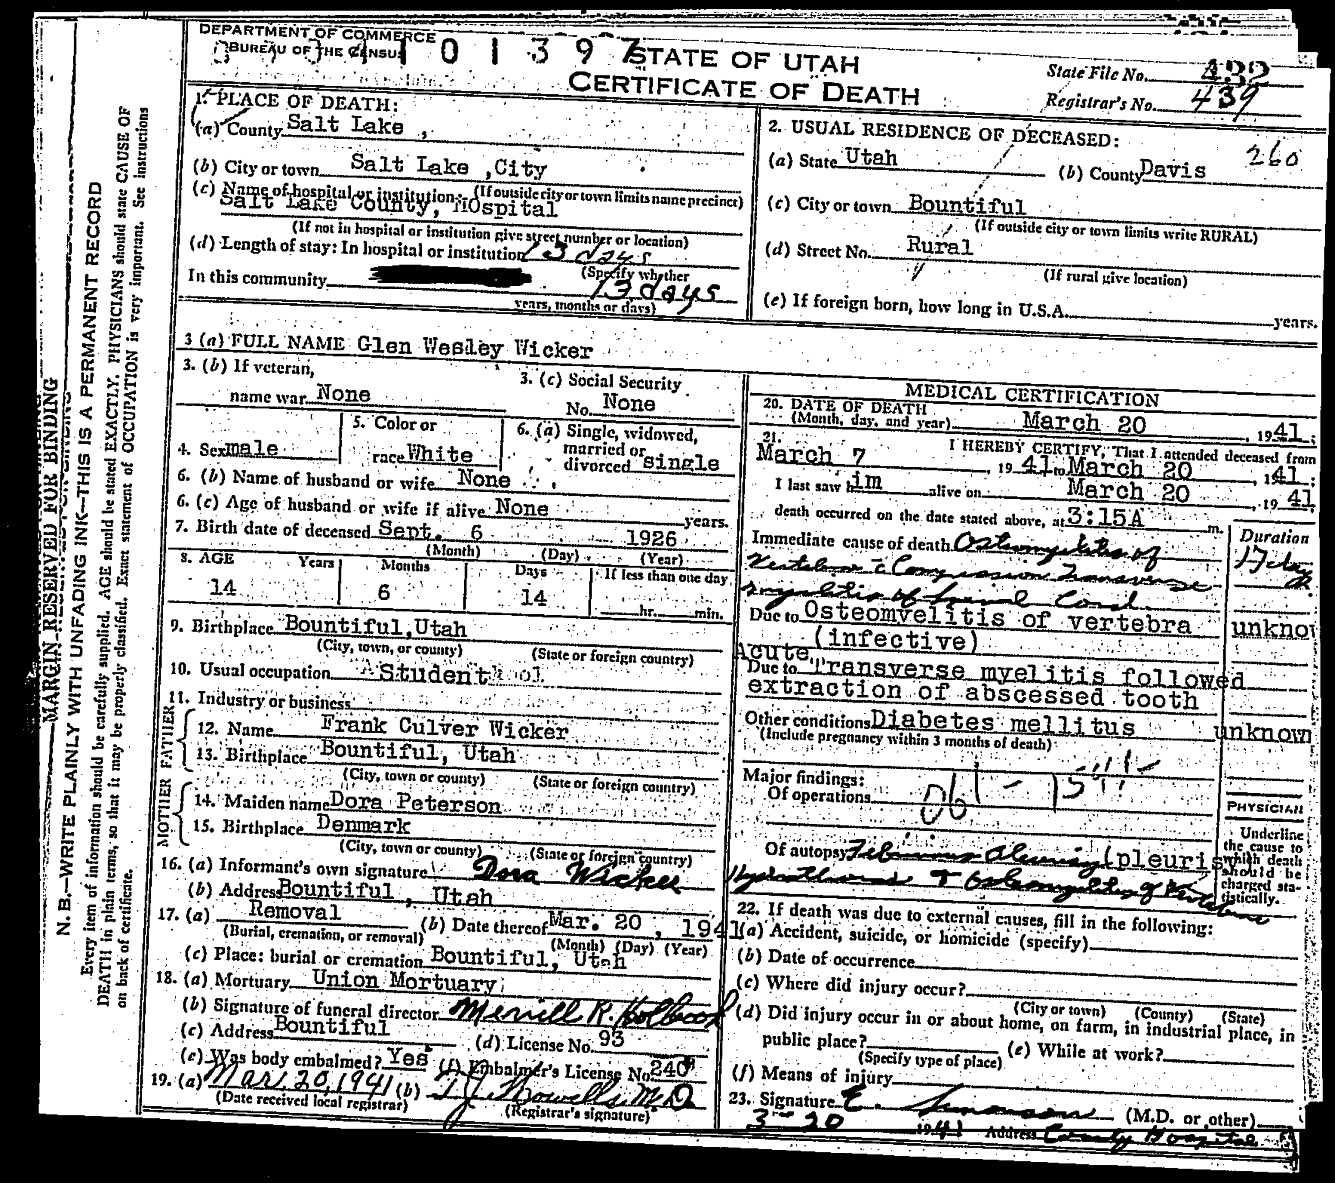 DEPARTMENT OF COMMERCE
BUREAU OF THE CENSUS
101397
STATE OF UTAH
CERTIFICATE OF DEATH
State File No. 432
Registrar's No. 439
1. PLACE OF DEATH:
(a) County Salt Lake ,
(b) City or town Salt Lake ,City
(If outside city or town limits name precinct)
(c) Name of hospital or institution:
Salt Lake County, Hospital
(If not in hospital or institution give street number or location)
(d) Length of stay: In hospital or institution 13 days
(Specify whether
In this community 13 days
years, months or days)
2. USUAL RESIDENCE OF DECEASED:
260
(a) State Utah (b) County Davis
(c) City or town Bountiful
(If outside city or town limits write RURAL)
(d) Street No. Rural
(If rural give location)
(e) If foreign born, how long in U.S.A. years.
3 (a) FULL NAME Glen Wesley Wicker
3. (b) If veteran, name war None
3. (c) Social Security No. None
4. Sex male
5. Color or race White
6. (a) Single, widowed, married or divorced single
6. (b) Name of husband or wife None
6. (c) Age of husband or wife if alive None years.
7. Birth date of deceased Sept. 6 1926
(Month) (Day) (Year)
8. AGE Years Months Days If less than one day
14 6 14 hr. min.
9. Birthplace Bountiful,Utah
(City, town, or county) (State or foreign country)
10. Usual occupation Student
11. Industry or business
FATHER
12. Name Frank Culver Wicker
13. Birthplace Bountiful, Utah
(City, town or county) (State or foreign country)
MOTHER
14. Maiden name Dora Peterson
15. Birthplace Denmark
(City, town or county) (State or foreign country)
16. (a) Informant's own signature Dora Wicker
(b) Address Bountiful , Utah
17. (a) Removal (b) Date thereof Mar. 20 , 1941
(Burial, cremation, or removal) (Month) (Day) (Year)
(c) Place: burial or cremation Bountiful, Utah
18. (a) Mortuary Union Mortuary
(b) Signature of funeral director Merrill R. Holbrook
(c) Address Bountiful (d) License No. 93
(e) Was body embalmed? Yes (f) Embalmer's License No. 240
19. (a) Mar. 20, 1941 (b) T. J. Howells M.D.
(Date received local registrar) (Registrar's signature)
MEDICAL CERTIFICATION
20. DATE OF DEATH
(Month, day, and year) March 20 , 1941;
21. I HEREBY CERTIFY, That I attended deceased from
March 7 , 1941 to March 20 , 1941;
I last saw him alive on March 20 , 1941
death occurred on the date stated above, at 3:15A m.
Duration
Immediate cause of death Osteomyelitis of
Vertebrae c Compression Transverse
myelitis of Spinal Cord
17 days
Due to Osteomyelitis of vertebra unknow
(infective)
Acute
Due to Transverse myelitis followed
extraction of abscessed tooth
Other conditions Diabetes mellitus unknown
(Include pregnancy within 3 months of death)
Major findings:
Of operations
061 -
Of autopsy Fibrinous Pleurisy (pleurisy
Hydrothorax & Osteomyelitis of Vertebrae
PHYSICIAN
Underline the cause to which death should be charged statistically.
22. If death was due to external causes, fill in the following:
(a) Accident, suicide, or homicide (specify)
(b) Date of occurrence
(c) Where did injury occur?
(City or town) (County) (State)
(d) Did injury occur in or about home, on farm, in industrial place, in
public place? (e) While at work?
(Specify type of place)
(f) Means of injury
23. Signature E. Simonson (M.D. or other)
3-20 1941 Address County Hospital
MARGIN RESERVED FOR BINDING
N. B.—WRITE PLAINLY WITH UNFADING INK—THIS IS A PERMANENT RECORD
Every item of information should be carefully supplied. AGE should be stated EXACTLY. PHYSICIANS should state CAUSE OF
DEATH in plain terms, so that it may be properly classified. Exact statement of OCCUPATION is very important. See instructions
on back of certificate.